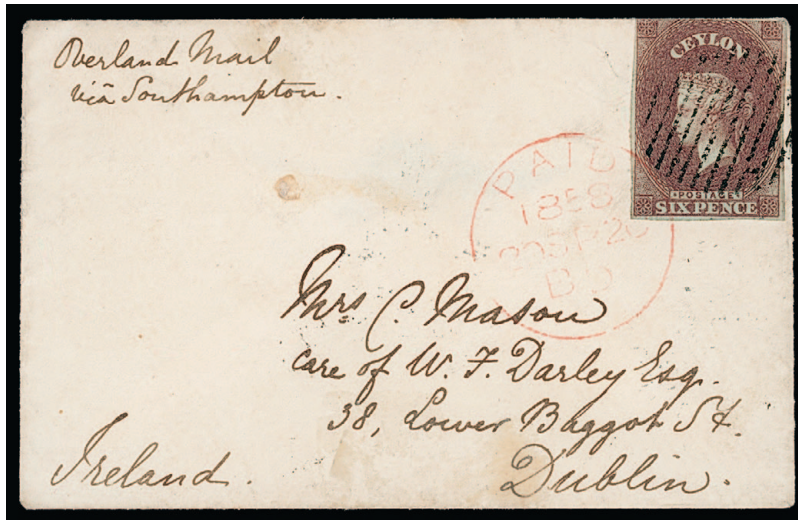 Overland Mail
via Southampton.
CEYLON
POSTAGE
SIX PENCE
PAID
1858
Mrs C. Mason
care of W. F. Darley Esq.
38, Lower Baggot St.
Dublin.
Ireland.